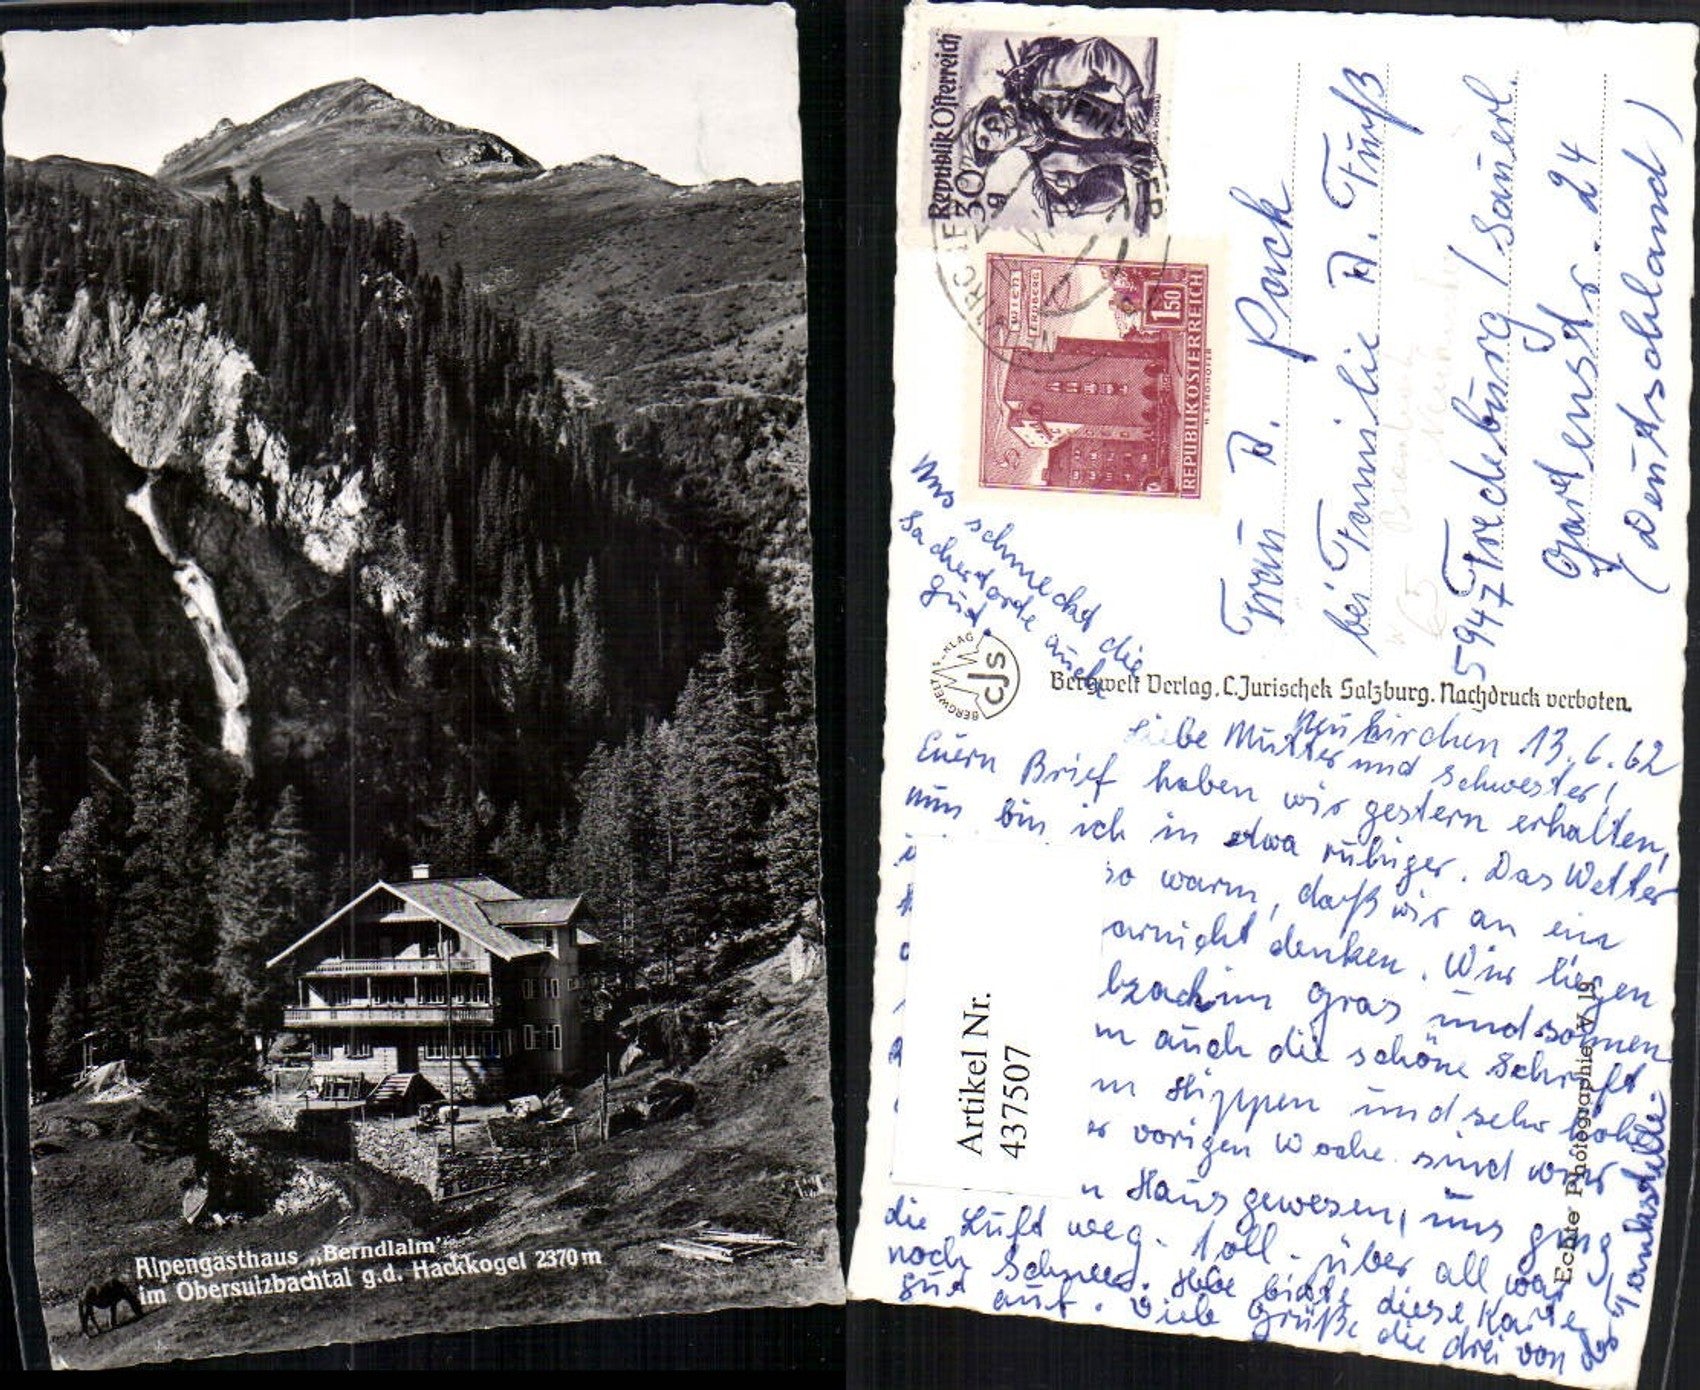 Alpengasthaus „Berndlalm"
im Obersulzbachtal g.d. Hackkogel 2370 m
Republik Österreich
30 g
WIEN
ERDBERG
1.50
REPUBLIK ÖSTERREICH
Frau A. Pock
bei Familie A. Fuß
5947 Fredeburg / Sauerl.
Gartenstr. 24
(Deutschland)
Uns schmeckt die
Sachertorte auch
gut.
BERGWELT VERLAG
CJS
Bergwelt Verlag, C. Jurischek Salzburg. Nachdruck verboten.
Neukirchen 13.6.62
Liebe Mutter und Schwester!
Euern Brief haben wir gestern erhalten,
nun bin ich in etwa ruhiger. Das Wetter
so warm, daß wir an ein
arnicht denken. Wir liegen
bzach im Gras und sonnen
m auch die schöne Schrift
m Hüppen und sehr hohe
er vorigen Woche sind wir
n Haus gewesen, uns ging
die Luft weg. Toll. über all war
noch Schnee. Hebe bitte diese Karte
gut auf. Viele Grüße die drei von
der "Tankstelle.
Artikel Nr.
437507
Echte Photographie